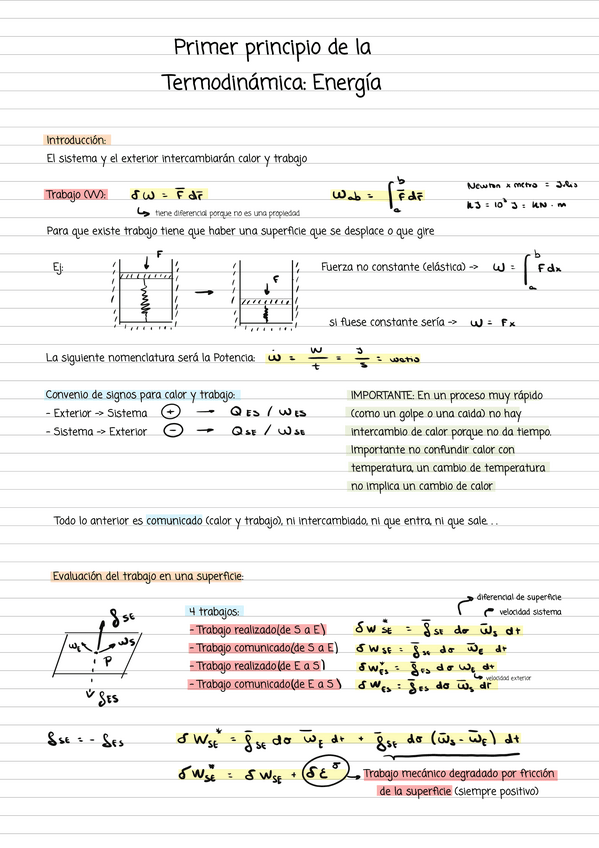 Primer principio de la
Termodinámica: Energía
Introducción:
El sistema y el exterior intercambiarán calor y trabajo
Trabajo (W): δW = F̄ dr̄
W_ab = ∫_a^b F̄ dr̄
Newton x metro = Julio
KJ = 10³ J = KN · m
tiene diferencial porque no es una propiedad
Para que existe trabajo tiene que haber una superficie que se desplace o que gire
Ej:
F
F
Fuerza no constante (elástica) -> W = ∫_a^b F dx
si fuese constante sería -> W = Fx
La siguiente nomenclatura será la Potencia: Ẇ = W/t = J/s = watio
Convenio de signos para calor y trabajo:
- Exterior -> Sistema (+) → Q_ES / W_ES
- Sistema -> Exterior (-) → Q_SE / W_SE
IMPORTANTE: En un proceso muy rápido
(como un golpe o una caida) no hay
intercambio de calor porque no da tiempo.
Importante no confundir calor con
temperatura, un cambio de temperatura
no implica un cambio de calor
Todo lo anterior es comunicado (calor y trabajo), ni intercambiado, ni que entra, ni que sale. . .
Evaluación del trabajo en una superficie:
f_SE
w_E
w_S
P
f_ES
4 trabajos:
diferencial de superficie
velocidad sistema
- Trabajo realizado(de S a E) δW*_SE = f̄_SE dσ w̄_S dt
- Trabajo comunicado(de S a E) δW_SE = f̄_SE dσ w̄_E dt
- Trabajo realizado(de E a S) δW*_ES = f̄_ES dσ w̄_E dt
velocidad exterior
- Trabajo comunicado(de E a S) δW_ES = f̄_ES dσ w̄_S dt
f_SE = - f_ES
δW*_SE = f̄_SE dσ w̄_E dt + f̄_SE dσ (w̄_S - w̄_E) dt
δW*_SE = δW_SE + δε^σ
Trabajo mecánico degradado por fricción
de la superficie (siempre positivo)